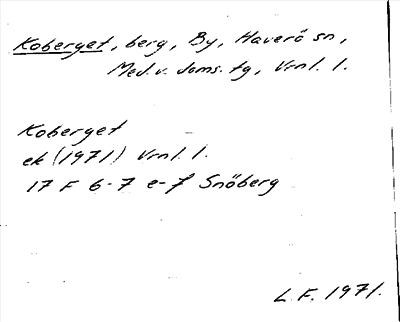 Koberget, berg, By, Haverö sn,
Med.v. doms. tg, Vrnl. l.
Koberget
ek (1971) Vrnl. l.
17 F 6-7 e-f Snöberg
L.F. 1971.